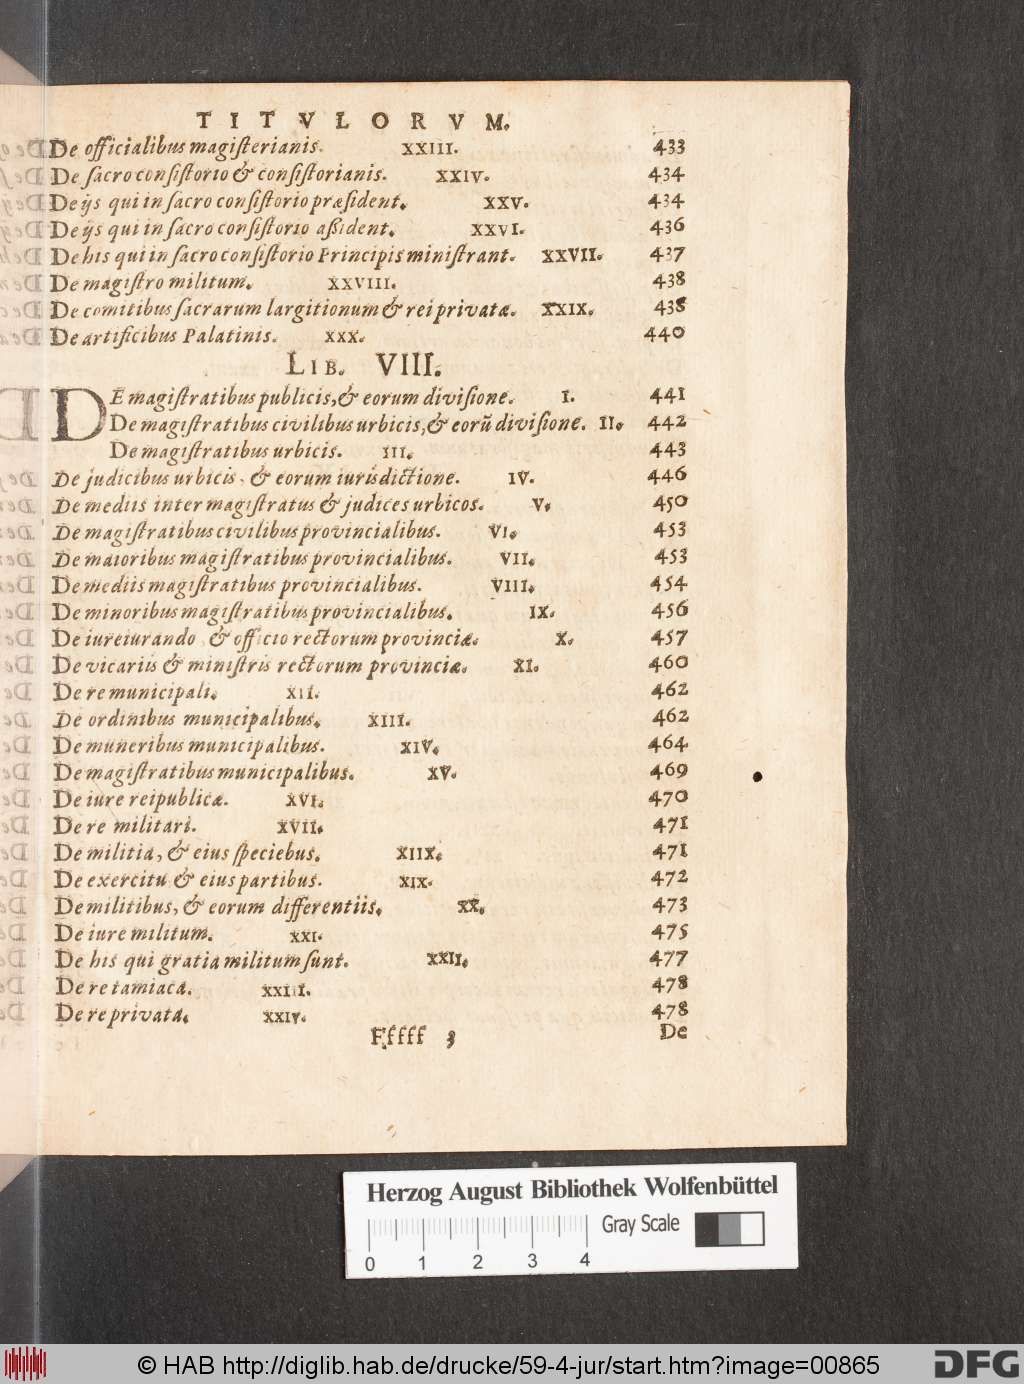 TITVLORVM.
De officialibus magisterianis. XXIII. 433
De sacro consistorio & consistorianis. XXIV. 434
De ijs qui in sacro consistorio præsident. XXV. 434
De ijs qui in sacro consistorio aßident. XXVI. 436
De his qui in sacro consistorio Principis ministrant. XXVII. 437
De magistro militum. XXVIII. 438
De comitibus sacrarum largitionum & rei privatæ. XXIX. 438
De artificibus Palatinis. XXX. 440
LIB. VIII.
DE magistratibus publicis, & eorum divisione. I. 441
De magistratibus civilibus urbicis, & eorũ divisione. II. 442
De magistratibus urbicis. III. 443
De judicibus urbicis, & eorum iurisdictione. IV. 446
De mediis inter magistratus & judices urbicos. V. 450
De magistratibus civilibus provincialibus. VI. 453
De maioribus magistratibus provincialibus. VII. 453
De mediis magistratibus provincialibus. VIII. 454
De minoribus magistratibus provincialibus. IX. 456
De iureiurando, & officio rectorum provinciæ. X. 457
De vicariis & ministris rectorum provinciæ. XI. 460
De re municipali. XII. 462
De ordinibus municipalibus. XIII. 462
De muneribus municipalibus. XIV. 464
De magistratibus municipalibus. XV. 469
De iure reipublicæ. XVI. 470
De re militari. XVII. 471
De militia, & eius speciebus. XIIX. 471
De exercitu & eius partibus. XIX. 472
De militibus, & eorum differentiis. XX. 473
De iure militum. XXI. 475
De his qui gratia militum sunt. XXII. 477
De re tamiaca. XXIII. 478
De re privata. XXIV. 478
Fffff 3 De
Herzog August Bibliothek Wolfenbüttel
Gray Scale
0 1 2 3 4
© HAB http://diglib.hab.de/drucke/59-4-jur/start.htm?image=00865
DFG